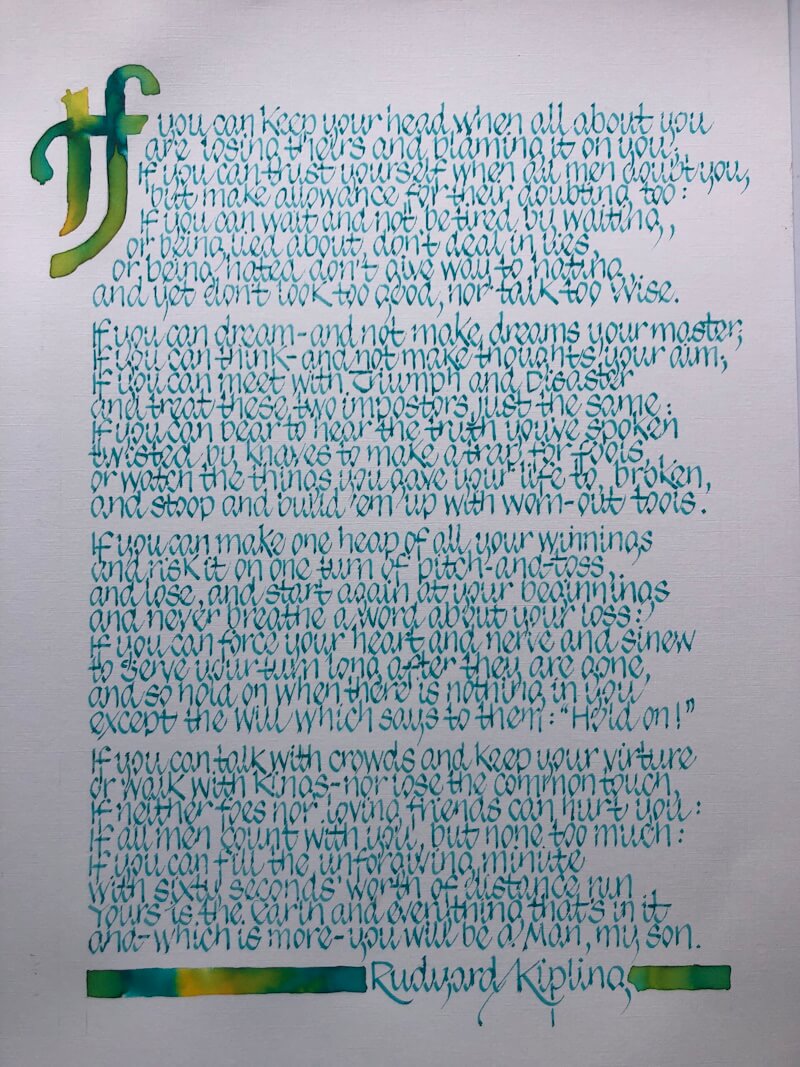 If you can keep your head when all about you
are losing theirs and blaming it on you;
If you can trust yourself when all men doubt you,
but make allowance for their doubting too:
If you can wait and not be tired by waiting,
or being lied about, don't deal in lies,
or being hated don't give way to hating,
and yet don't look too good, nor talk too wise.
If you can dream-and not make dreams your master;
If you can think-and not make thoughts your aim;
If you can meet with Triumph and Disaster
and treat these two impostors just the same:
If you can bear to hear the truth you've spoken
twisted by knaves to make a trap for fools,
or watch the things you gave your life to, broken,
and stoop and build 'em up with worn-out tools.
If you can make one heap of all your winnings
and risk it on one turn of pitch-and-toss,
and lose, and start again at your beginnings
and never breathe a word about your loss:
If you can force your heart and nerve and sinew
to serve your turn long after they are gone,
and so hold on when there is nothing in you
except the Will which says to them: "Hold on!"
If you can talk with crowds and keep your virture
or walk with Kings-nor lose the common touch,
If neither foes nor loving friends can hurt you:
if all men count with you, but none too much:
If you can fill the unforgiving minute
with sixty seconds' worth of distance run
Yours is the Earth and everything that's in it
and-which is more-you will be a Man, my son.
Rudyard Kipling